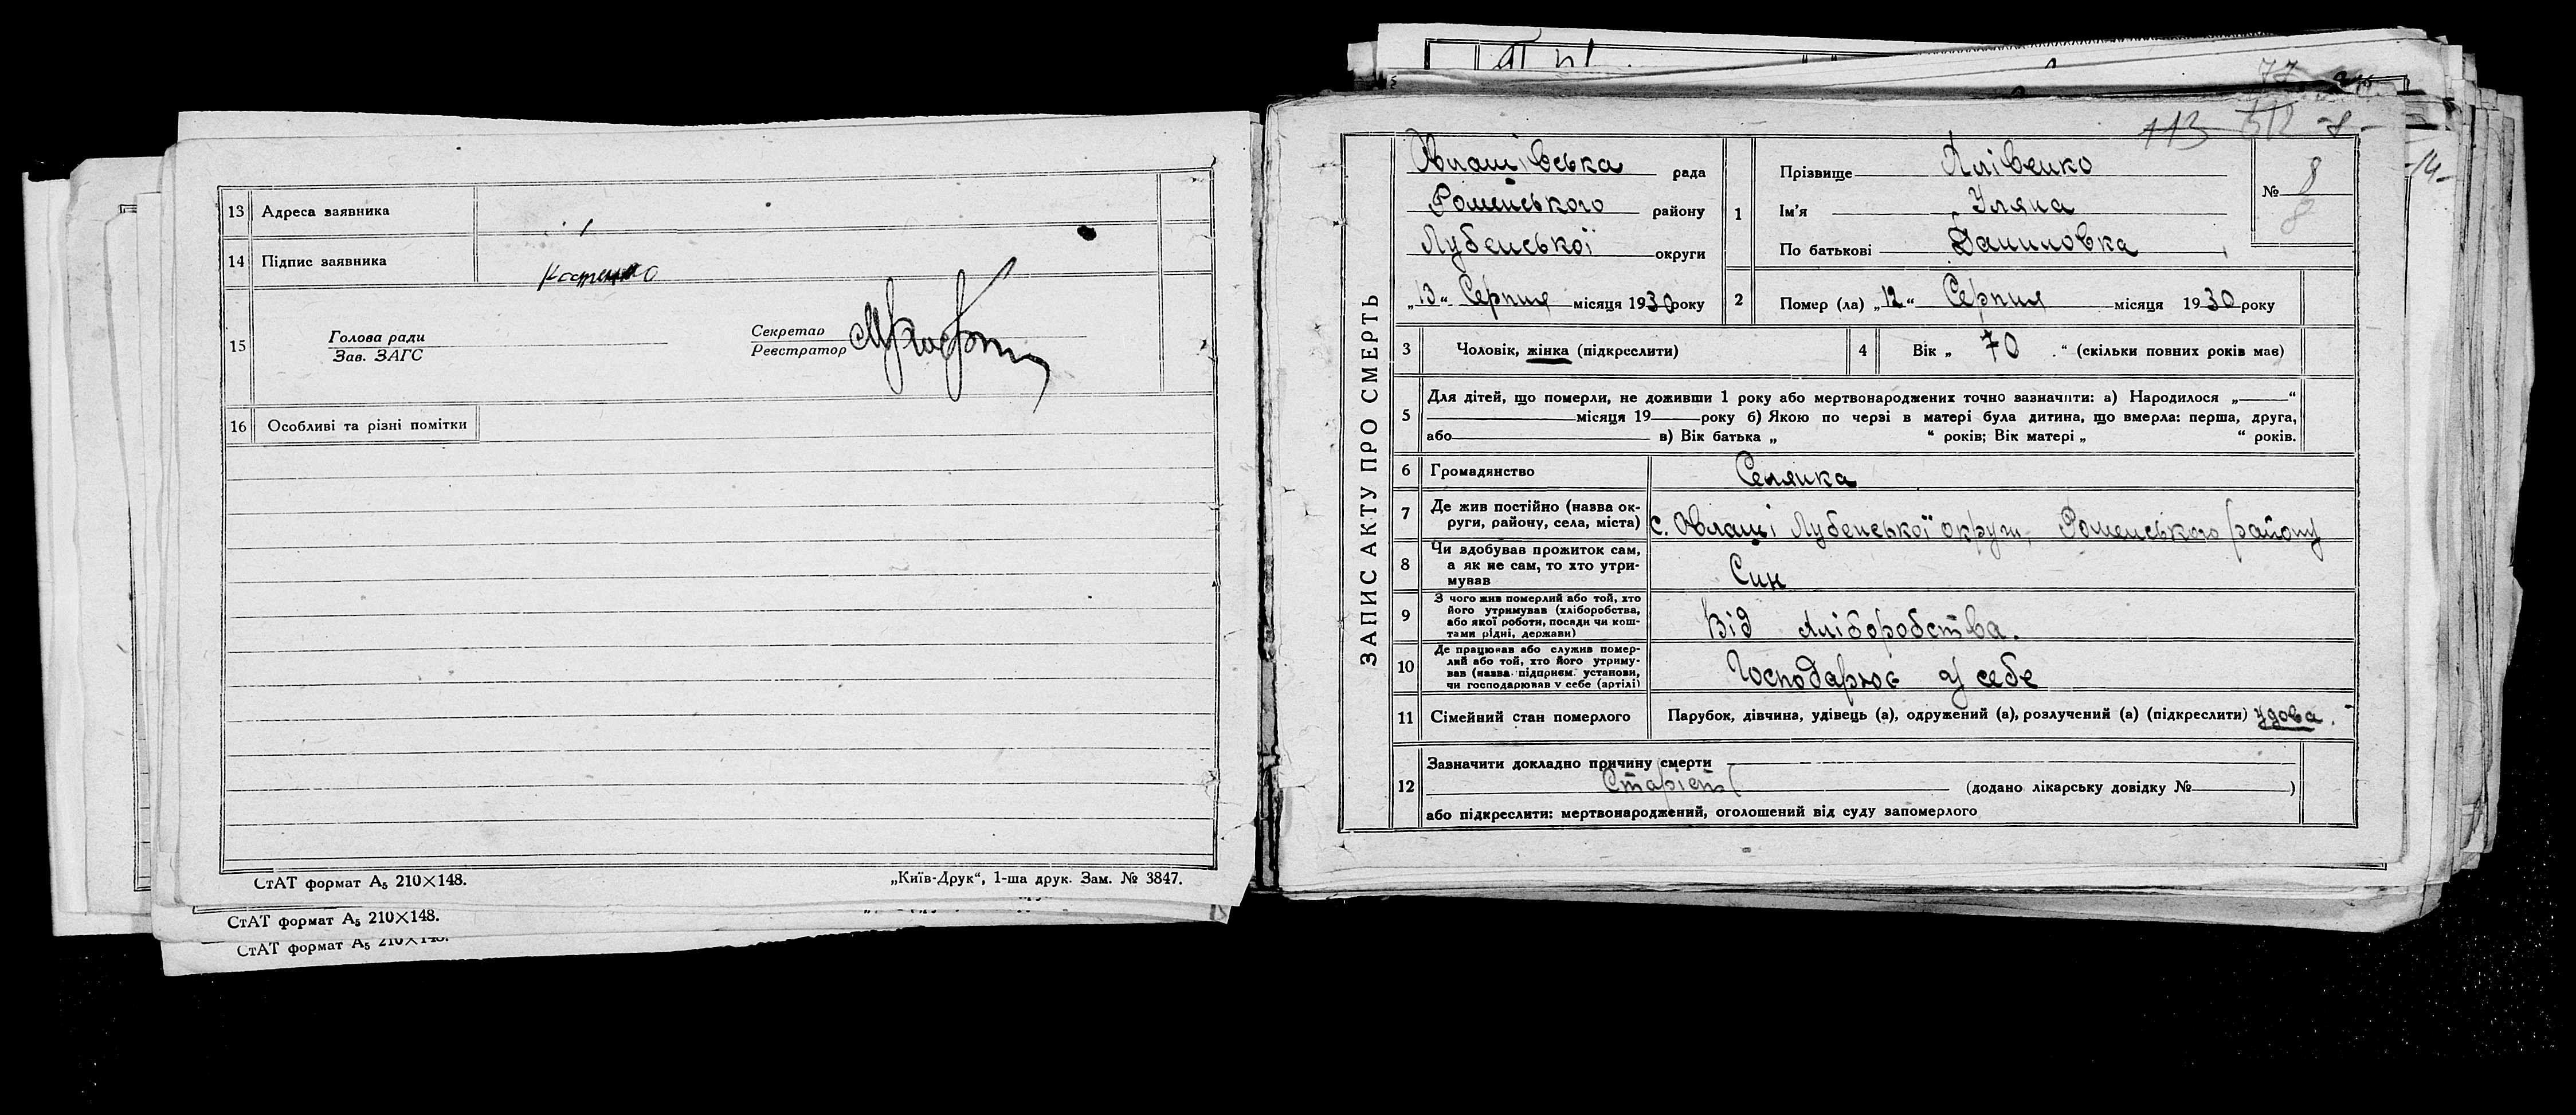 13 Адреса заявника
14 Підпис заявника Костенко
15 Голова ради
Зав. ЗАГС
Секретар
Реєстратор
16 Особливі та різні помітки
СтАТ формат А₅ 210×148.
„Київ-Друк“, 1-ша друк. Зам. № 3847.
СтАТ формат А₅ 210×148.
СтАТ формат А₅ 210×148.
77
113 512 -8-
-14-
ЗАПИС АКТУ ПРО СМЕРТЬ
Овлашівська рада
Роменського району
Лубенської округи
„13“ Серпня місяця 1930 року
1 Прізвище Хлівенко
Ім'я Уляна
По батькові Даниловка
№ 8
8
2 Помер (ла) „12“ Серпня місяця 1930 року
3 Чоловік, жінка (підкреслити)
4 Вік „ 70 “ (скільки повних років має)
5 Для дітей, що померли, не доживши 1 року або мертвонароджених точно зазначити: а) Народилося „ “
місяця 19 року б) Якою по черзі в матері була дитина, що вмерла: перша, друга,
або в) Вік батька „ “ років; Вік матері „ “ років.
6 Громадянство Селянка
7 Де жив постійно (назва ок-
руги, району, села, міста) с. Овлаші Лубенської округи, Роменського району
8 Чи здобував прожиток сам,
а як не сам, то хто утри-
мував Син
9 З чого жив померлий або той, хто
його утримував (хліборобства,
або якої роботи, посади чи кош-
тами рідні, держави) Від хліборобства.
10 Де працював або служив помер-
лий або той, хто його утриму-
вав (назва підприєм. установи,
чи господарював у себе (артілі) Господарює у себе
11 Сімейний стан померлого Парубок, дівчина, удівець (а), одружений (а), розлучений (а) (підкреслити) удова.
12 Зазначити докладно причину смерти
Старість (додано лікарську довідку № )
або підкреслити: мертвонароджений, оголошений від суду запомерлого